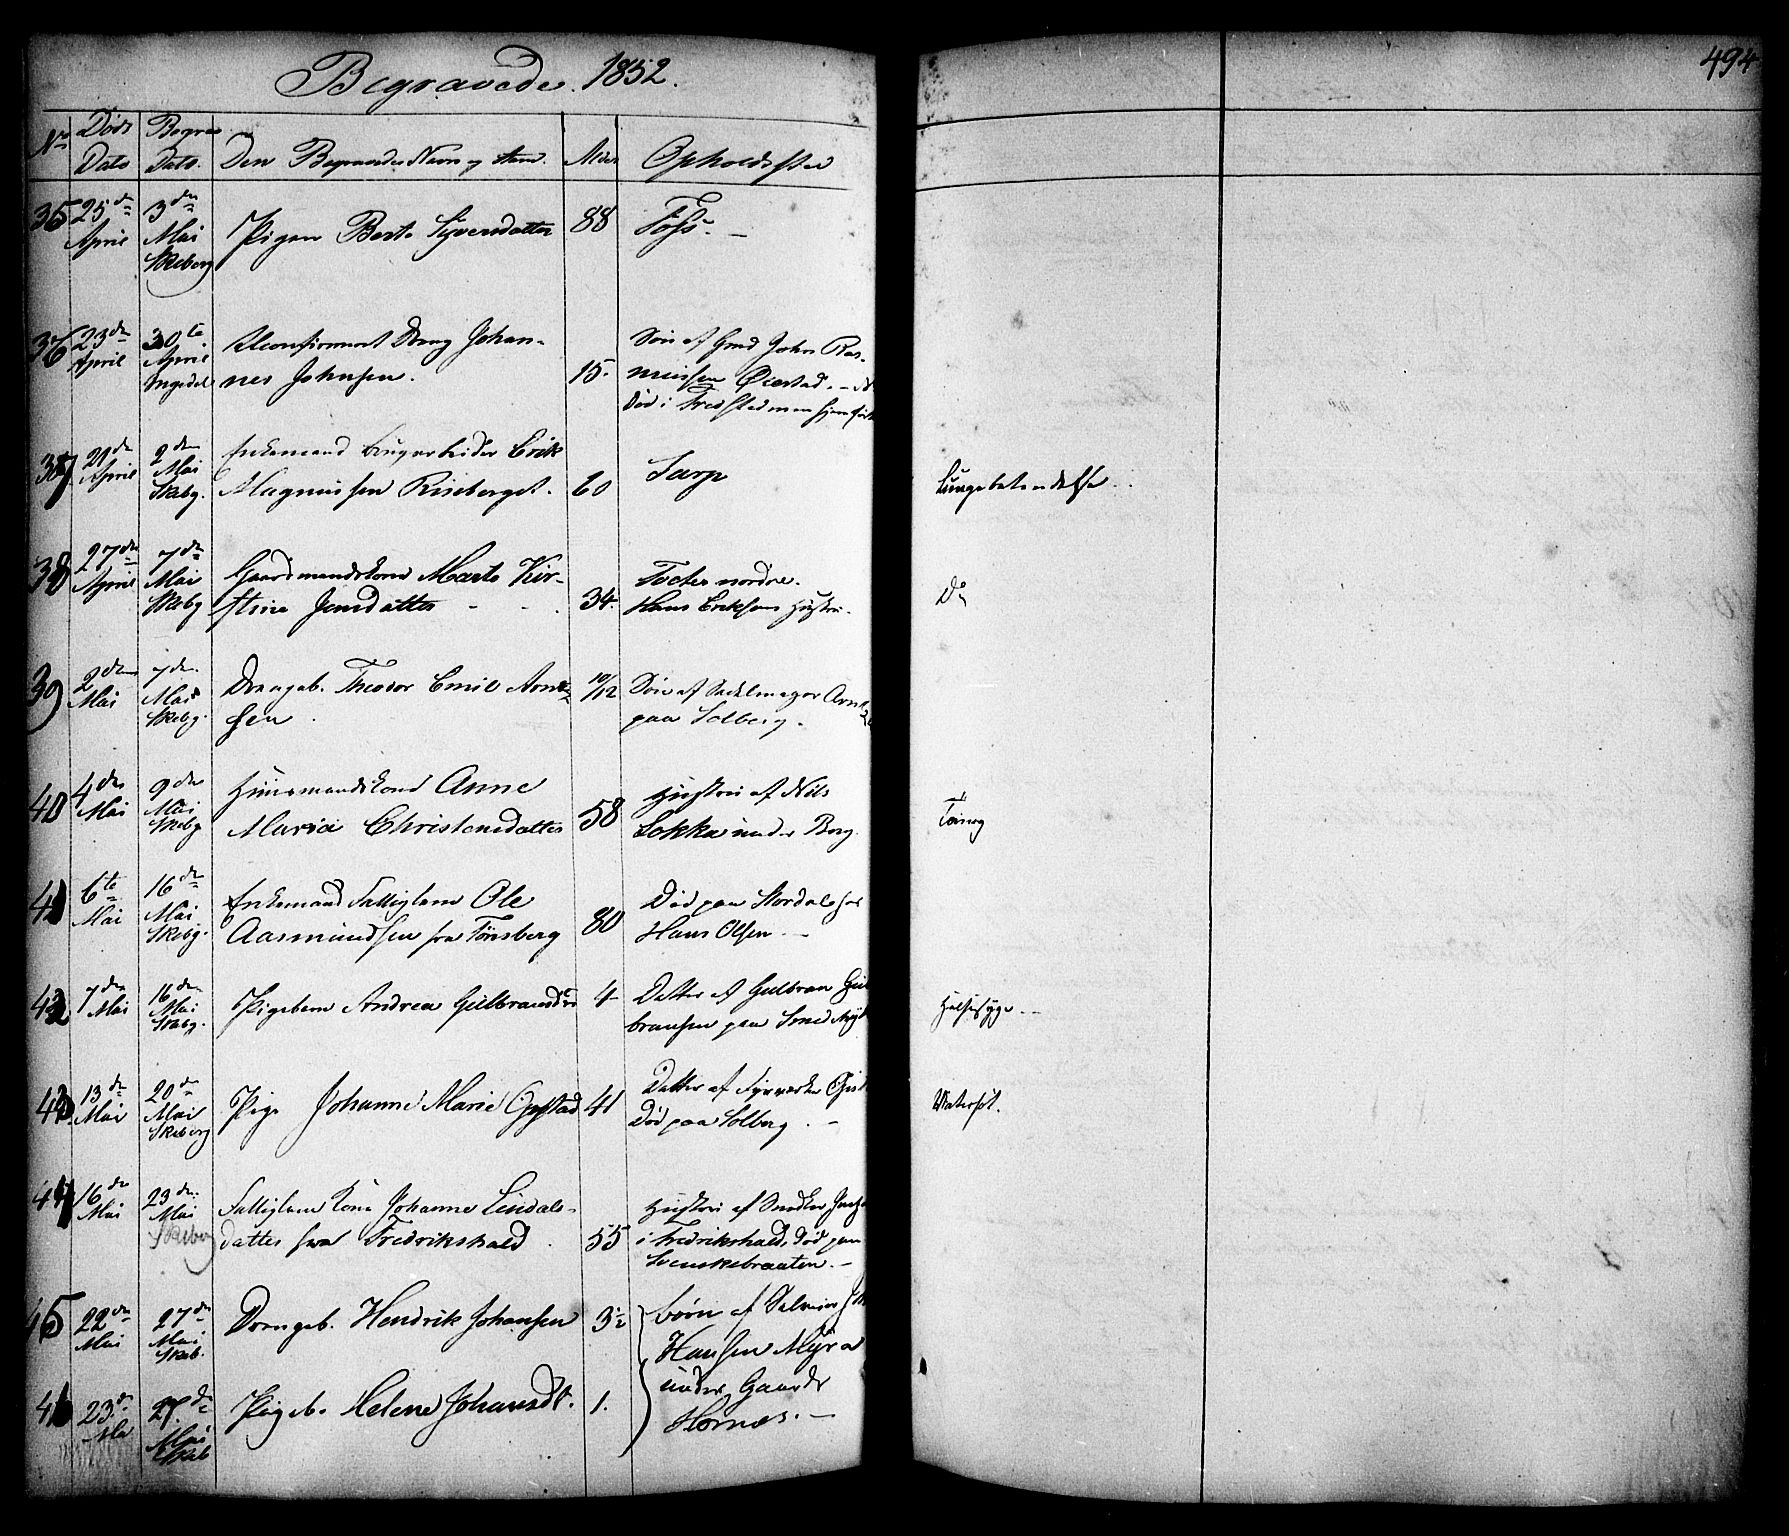 Begravede. 1852.
494
No Døds Dato Begrav Dato. Den Begravedes Navn og Stand. Alder Opholdssted
35 25de April 3die Mai Skeberg Pigen Berte Syversdatter 88 Foss. –
36 23de April 30te April Ingedal Uconfirmert Dreng Johan-
nes Johnsen. 15. Søn af Gmd John Ras-
mussen Øiestad. –
Død i Fredsted men hjemført
37 21de April 2den Mai Skebg. Enkemand Brugarbeider Erik
Magnussen Riseberget. 60 Sarp Lungebetændelse.
38 27de April 7de Mai Skebg Gaardmandskone Marte Kir-
stine Jensdatter 34. Tveter nordre.
Hans Eriksens Hustru. Do
39 2den Mai 7de Mai Skebg. Drengeb. Theodor Emil Arnt-
sen. 10/12 Søn af Sadelmager Arntzen
paa Solberg.
40 4de Mai 9de Mai Skebg Huusmandskone Anne
Maria Christensdatter 58 Hustru af Nils
Lokka under Borg. Tæring
41 6te Mai 16de Mai Skebg. Enkemand Fattiglem Ole
Aasmundsen fra Tønsberg 80 Død paa Stordal hos
Hans Olsen. –
42 7de Mai 16de Mai Skebg. Pigebarn Andrea Gulbrandsd. 4 Datter af Gulbran Gul
bransen paa Halssyge. –
43 13de Mai 20de Mai Skeberg Pige Johanne Marie Opstad 41 Datter af
Død paa Solberg. – Vatersot.
44 16de Mai 23de Mai Skeberg Fattiglem Kone Johanne Lindals-
datter fra Fredrikshald. 55 Hustru af Snedker
i Fredrikshald, død paa
Svenskebraaten. –
45 22de Mai 27de Mai Skeb. Drengeb. Hendrik Johansen 3½ børn af
Hansen Myra
46 23de Mai 27de Mai Skeb Pigeb. Helene Johansdt. 1. under Gaarde
Hornæs. –